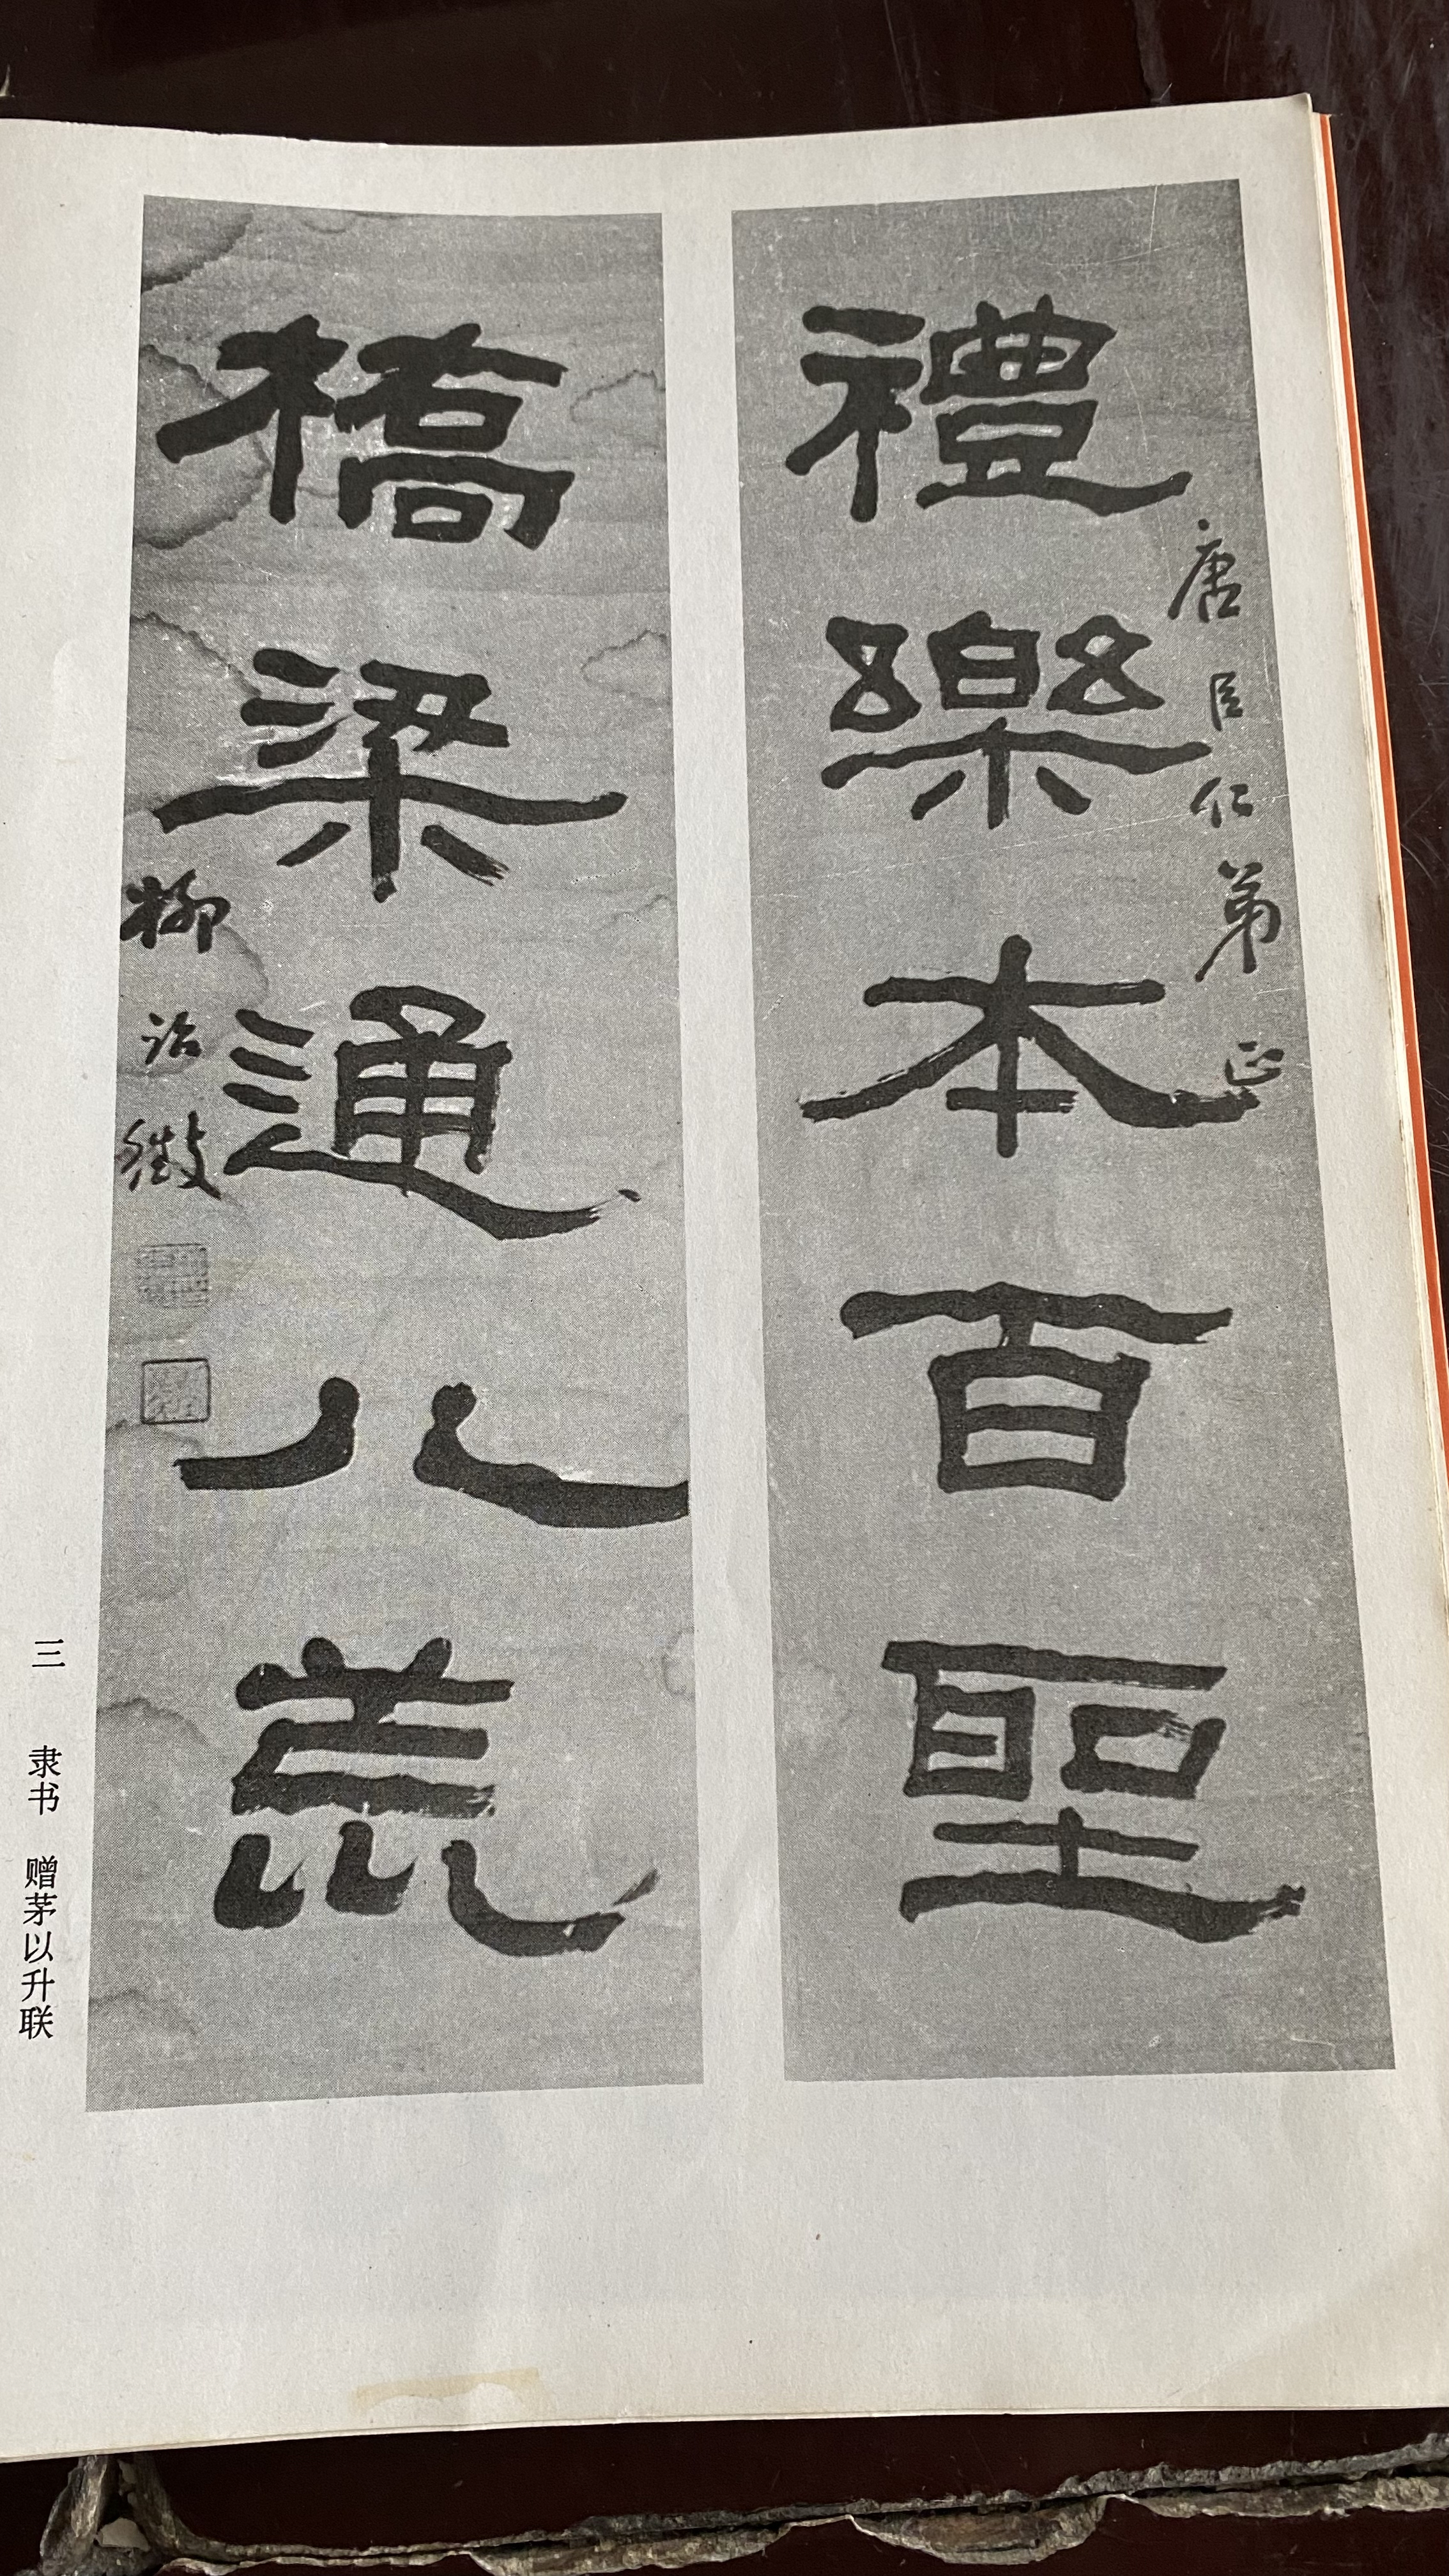 禮樂本百聖
唐臣仁弟正
橋梁通八荒
柳詒徵
三 隶书 赠茅以升联